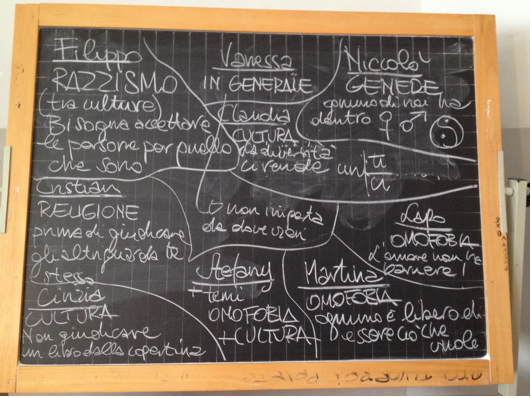 Filippo
RAZZISMO
(tra culture)
Bisogna accettare
le persone per quello
che sono
Vanessa
IN GENERALE
Niccolò
GENEDE
ognuno di noi ha
dentro ♀ ♂ ☯
Claudia
CULTURA
la diversità
ci rende uni ti
ci
e non importa
da dove vieni
Cristian
RELIGIONE
prima di giudicare
gli altri guarda te
stesso
Cinzia
CULTURA
Non giudicare
un libro dalla copertina
Stefany
+ temi
OMOFOBIA
+ CULTURA
Martina
OMOFOBIA
ognuno è libero di
essere ciò che
vuole
Lapo
OMOFOBIA
L'amore non ha
barriere!